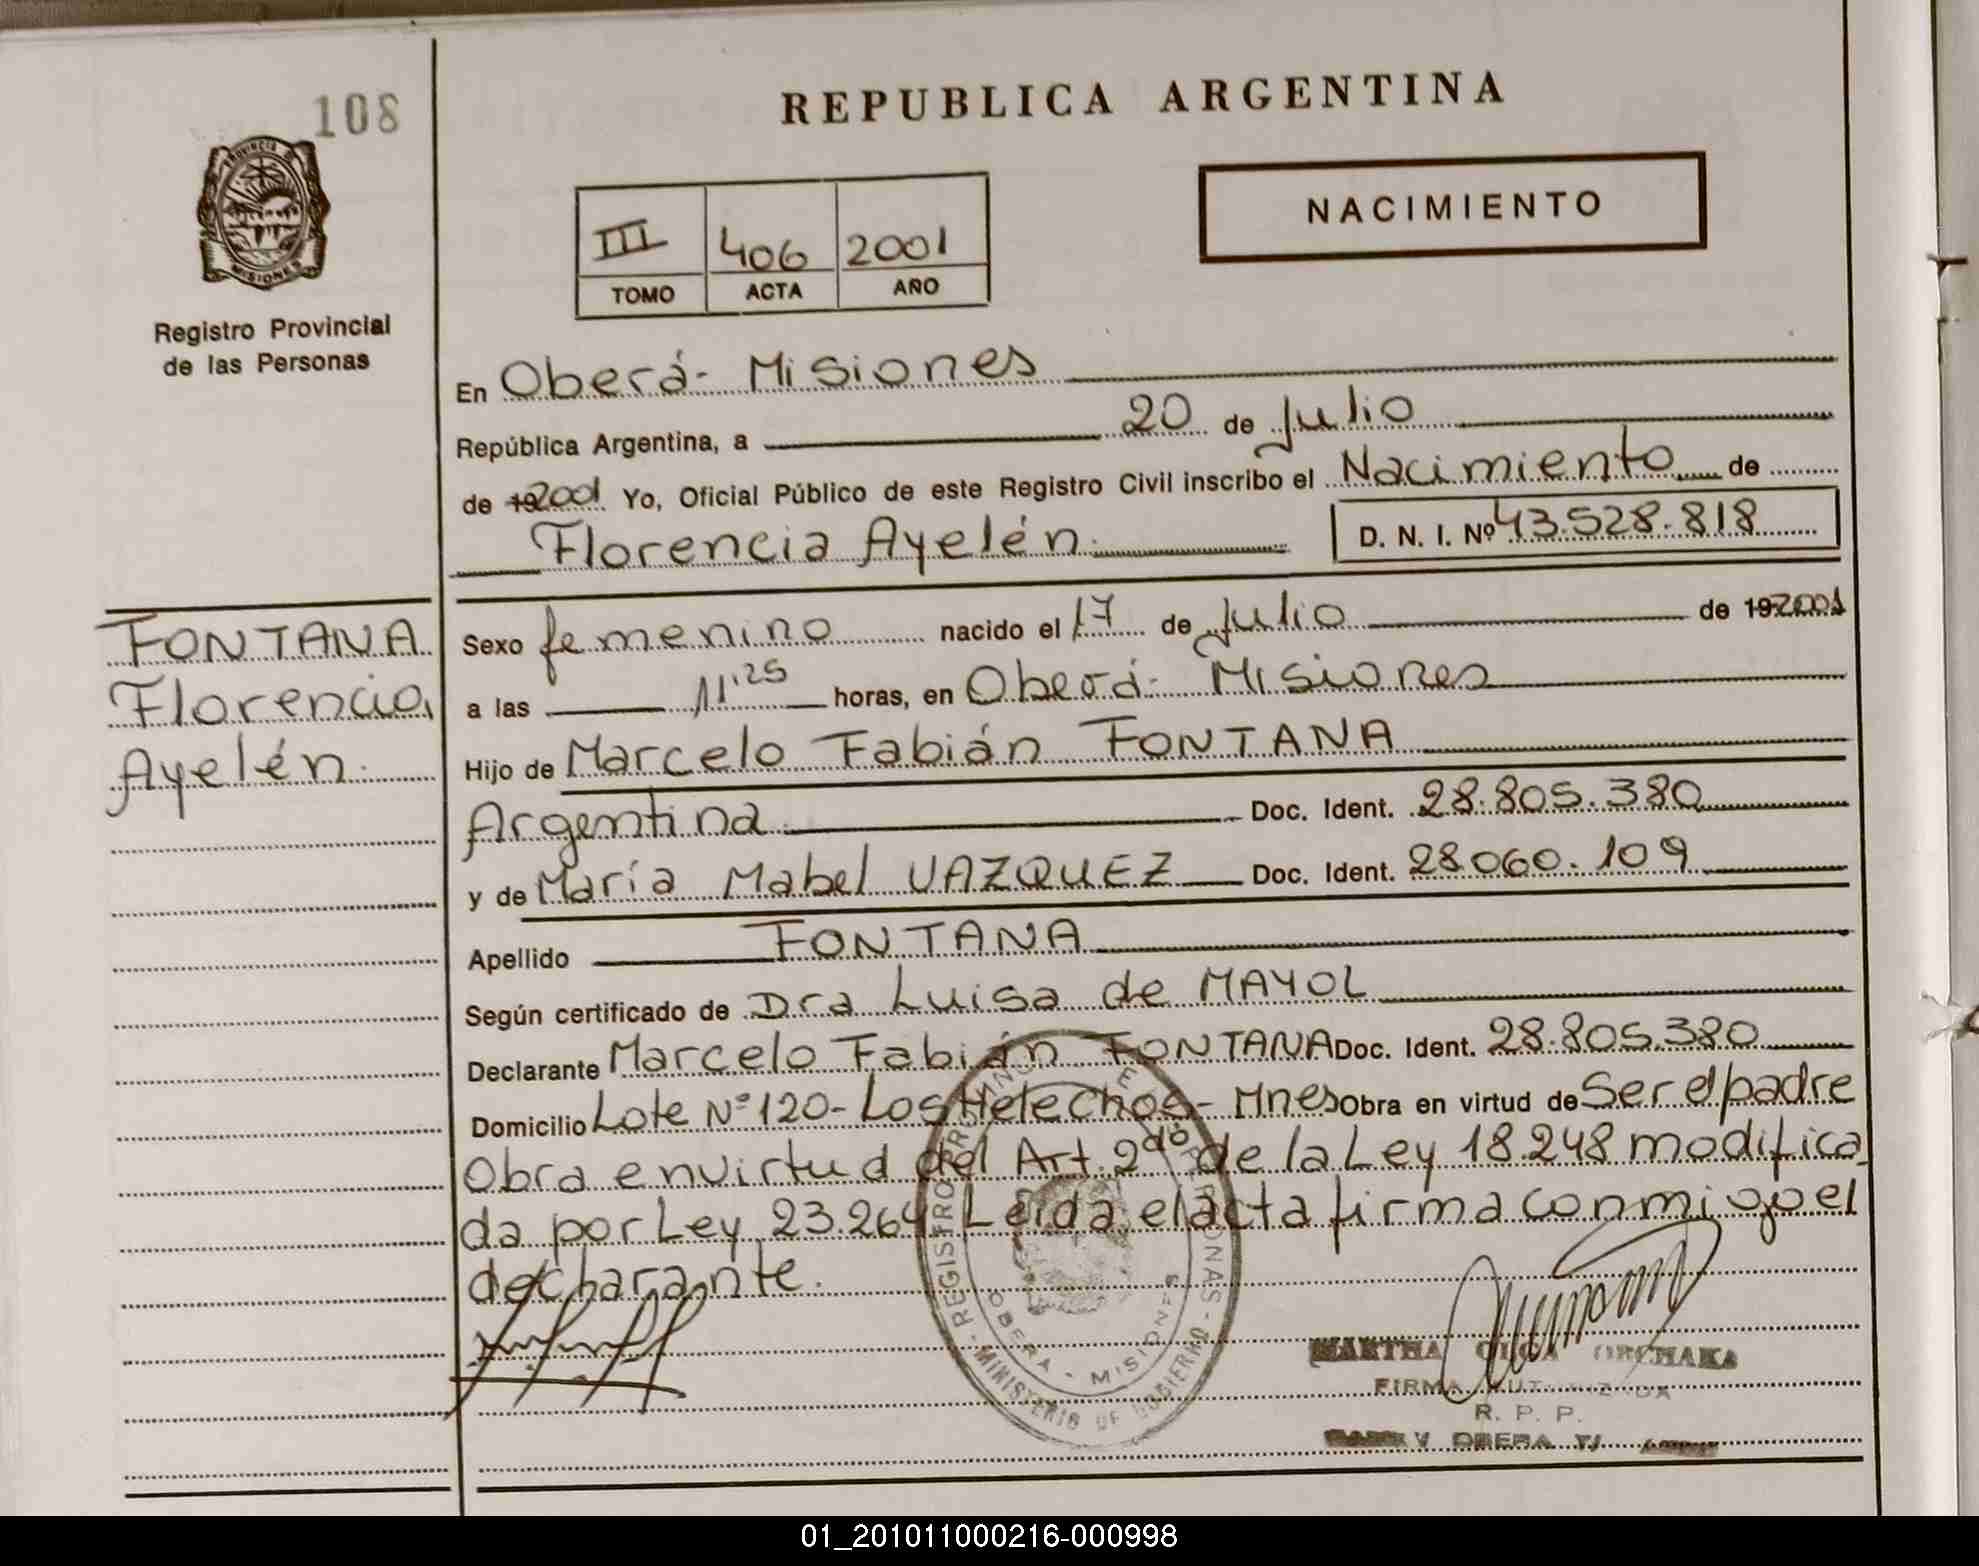 108
PROVINCIA DE
MISIONES
Registro Provincial
de las Personas
FONTANA
Florencia
Ayelén.
REPUBLICA ARGENTINA
III 406 2001
TOMO ACTA AÑO
NACIMIENTO
En Oberá- Misiones
República Argentina, a 20 de Julio
de 192001 Yo, Oficial Público de este Registro Civil inscribo el Nacimiento de
Florencia Ayelén. D. N. I. Nº 43.528.818
Sexo femenino nacido el 17 de Julio de 192001
a las 11'25 horas, en Oberá- Misiones
Hijo de Marcelo Fabián FONTANA
Argentina Doc. Ident. 28.805.380
y de María Mabel VAZQUEZ Doc. Ident. 28060.109
Apellido FONTANA
Según certificado de Dra Luisa de MAYOL
Declarante Marcelo Fabián FONTANA Doc. Ident. 28.805.380
Domicilio Lote Nº 120- Los Helechos- Mnes Obra en virtud de Ser el padre
Obra en virtud del Art. 2do de la Ley 18.248 modifica
da por Ley 23.264 Leída el acta firma conmigo el
declarante.
REGISTRO PERSONAS - MINISTERIO DE GOBIERNO
OBERA - MISIONES
MARTHA OLGA ORCHAKA
FIRMA AUTORIZADA
R. P. P.
OBERA
01_201011000216-000998